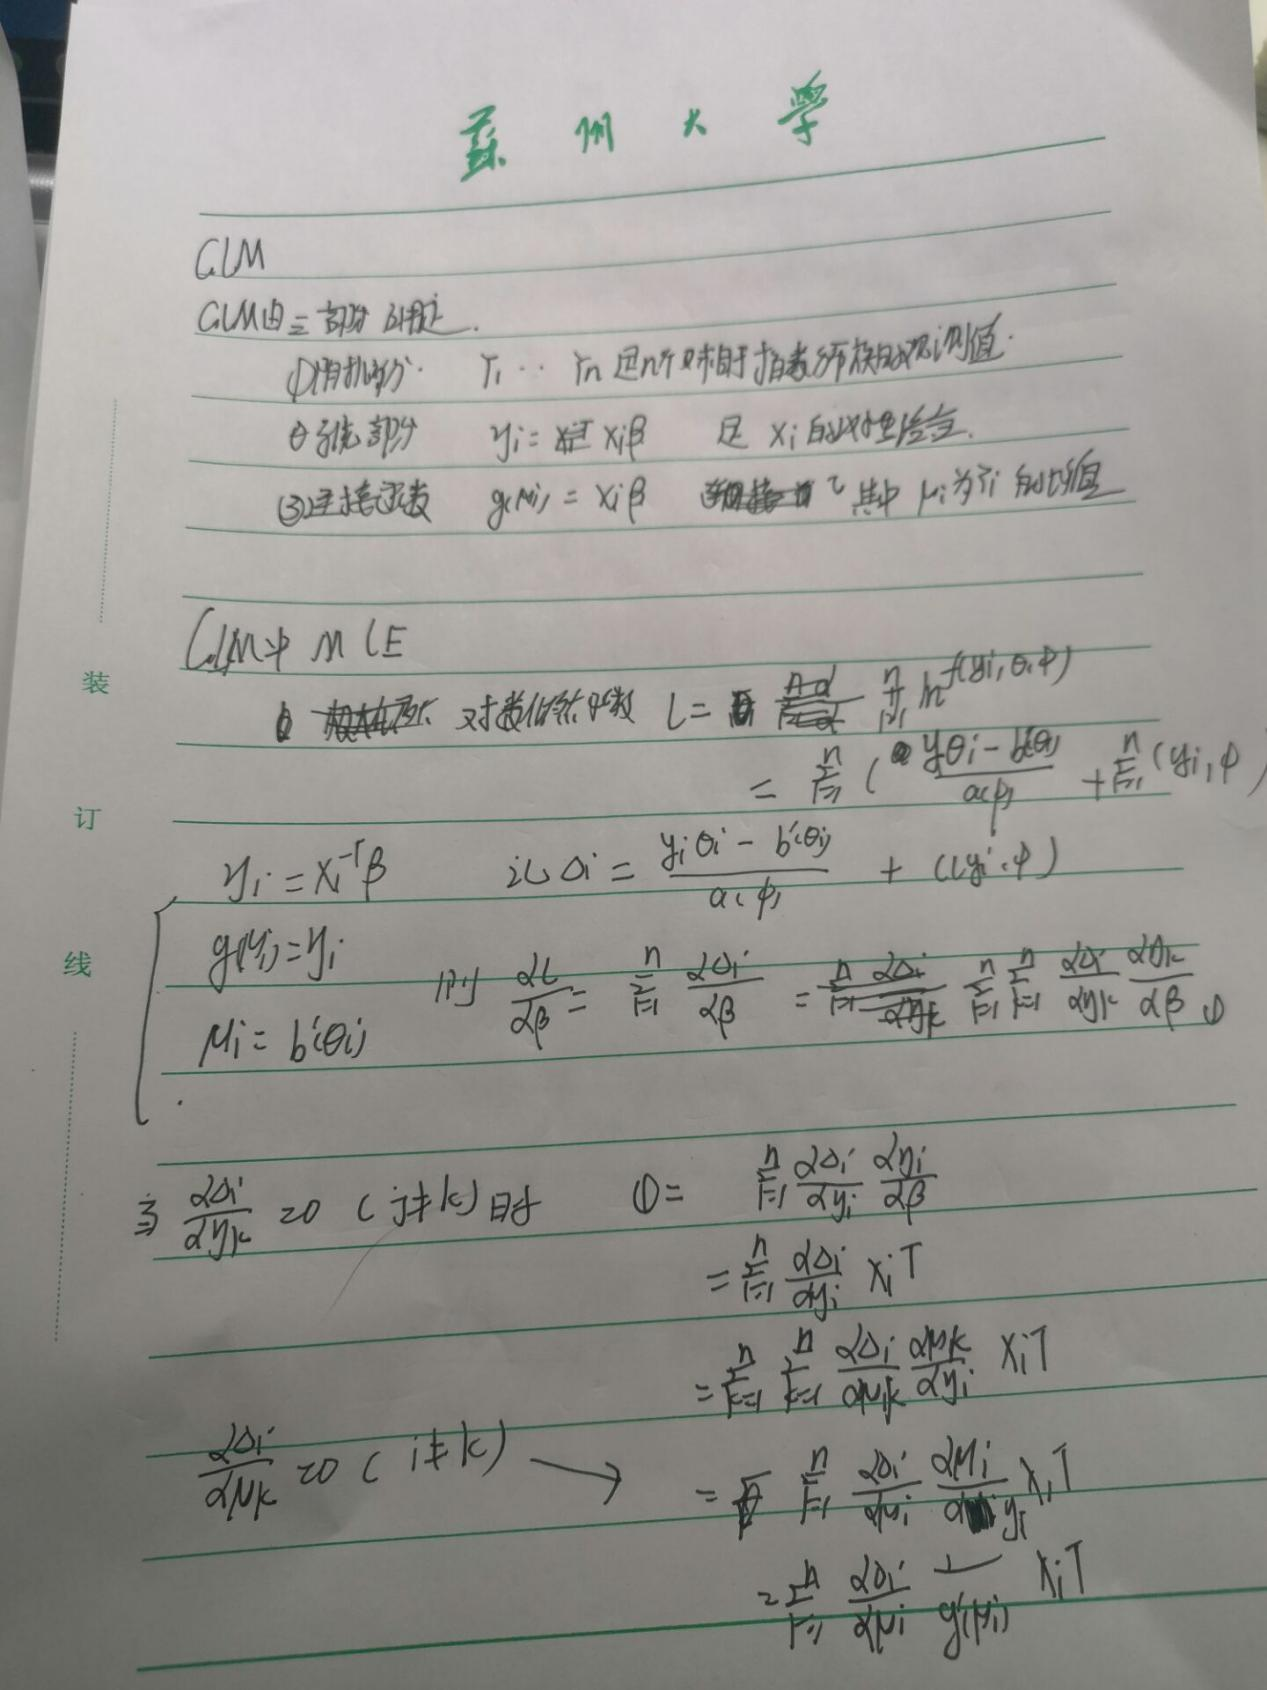 蘇州大學
GLM
GLM由三部分组成.
①随机部分. Y₁ … Yn 是n个来自于指数分布族的观测值.
②系统部分 ηi = xiβ 是 xi 的线性组合.
③连接函数 g(μi) = xiβ 其中 μi 为 Yi 的均值
GLM中 MLE
对数似然函数 L = ∏ᵢ₌₁ⁿ ln f(yi, θ, φ)
= Σᵢ₌₁ⁿ ( (yθi - b(θi)) / a(φ) + Σᵢ₌₁ⁿ (yi, φ)
ηi = xiᵀβ 记 Δi = (yiθi - b(θi)) / a(φ) + C(yi, φ)
g(μi) = ηi
μi = b'(θi) 则 ∂L/∂β = Σᵢ₌₁ⁿ ∂Δi/∂β = Σᵢ₌₁ⁿ Σₖ₌₁ⁿ ∂Δi/∂ηk ∂ηk/∂β ①
装
订
线
当 ∂Δi/∂ηk = 0 (i≠k) 时 ① = Σᵢ₌₁ⁿ ∂Δi/∂ηi ∂ηi/∂β
= Σᵢ₌₁ⁿ ∂Δi/∂ηi xiT
= Σₖ₌₁ⁿ Σₖ₌₁ⁿ ∂Δi/∂μk ∂μk/∂ηi xiT
∂Δi/∂μk = 0 (i≠k) → = Σᵢ₌₁ⁿ ∂Δi/∂μi ∂μi/∂ηi xiT
= Σᵢ₌₁ⁿ ∂Δi/∂μi 1/g'(μi) xiT